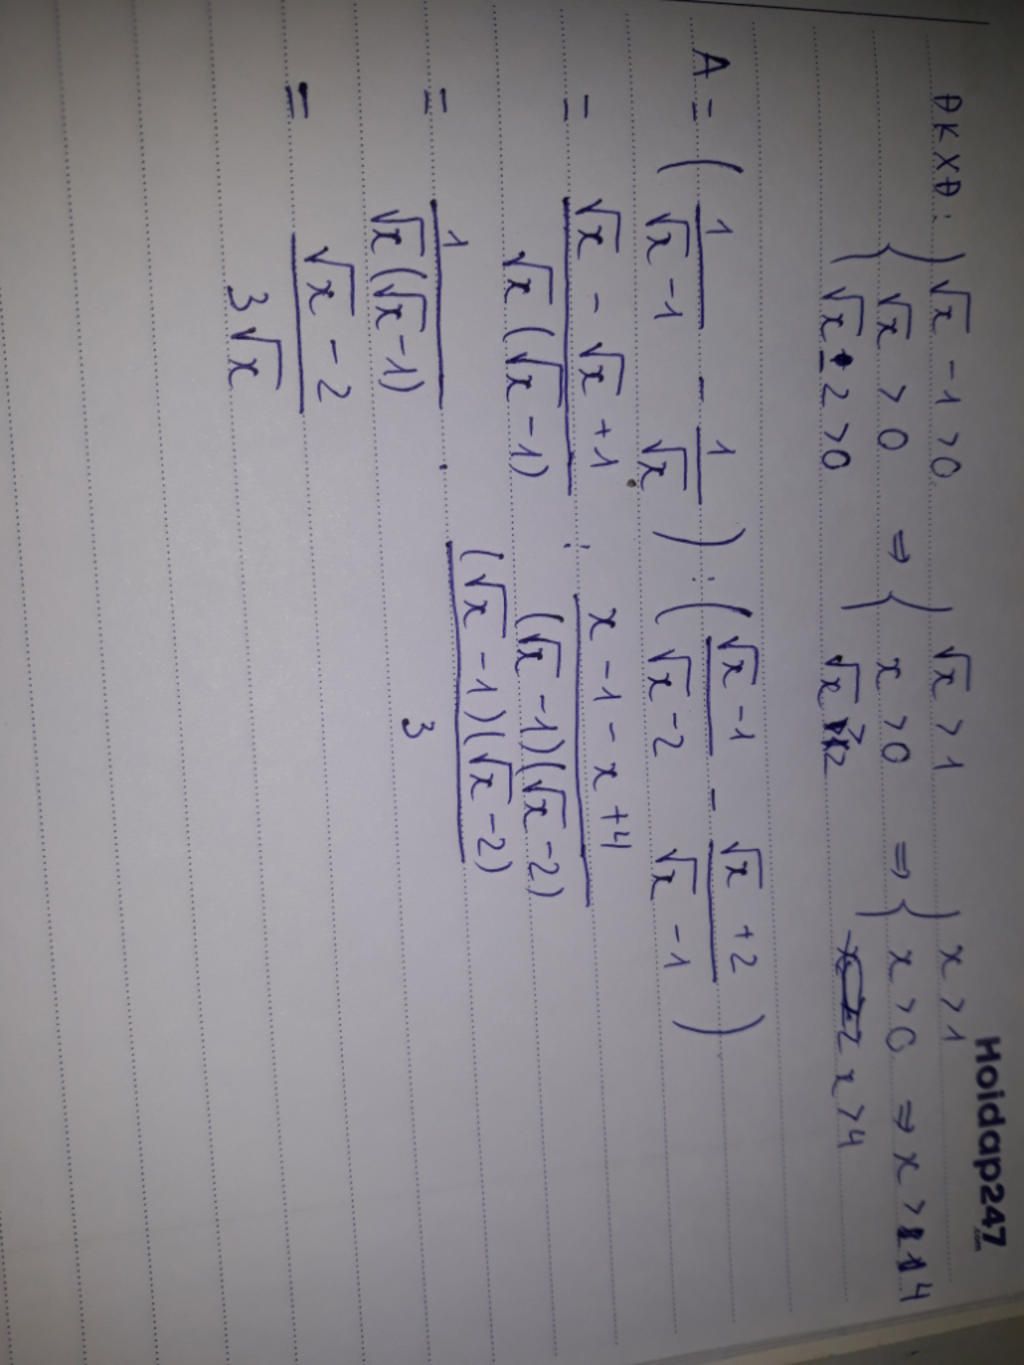 Hoidap247.com
ĐKXĐ: { √x - 1 > 0 ⇒ { √x > 1 ⇒ { x > 1
√x > 0 x > 0 x > 0 ⇒ x > 4
√x - 2 > 0 √x > 2 x > 4
A = ( 1/(√x - 1) - 1/√x ) : ( (√x - 1)/(√x - 2) - (√x + 2)/(√x - 1) )
= (√x - √x + 1)/(√x (√x - 1)) : (x - 1 - x + 4)/((√x - 1)(√x - 2))
= 1/(√x (√x - 1)) . ((√x - 1)(√x - 2))/3
= (√x - 2)/(3√x)